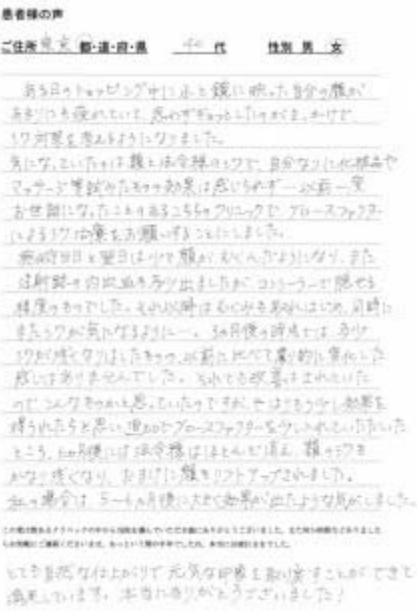 患者様の声
ご住所 東京 都・道・府・県 40 代 性別 男 女
ある日のショッピング中にふと鏡に映った自分の顔が
あまりにも疲れていて、思わずぎょっとしたのがきっかけで、
シワ対策を考えるようになりました。
気になっていたのは額と法令線のシワで、自分なりに化粧品や
マッサージ等試みたものの効果は感じられず…以前一度
お世話になったことのあるこちらのクリニックで グロースファクター
によるシワ治療をお願いすることにしました。
施術当日と翌日は 顔が むくんだようになり、また
注射跡の内出血も多少出ましたが、コンシーラーで隠せる
程度のものでした。それ以降はむくみもあれはじめ、同時に
またシワが気になるように…。3ヵ月後の時点では、多少
シワが浅くなりはしたものの、以前に比べて劇的に変化した
感じはありませんでした。それでも改善はされていた
のでこんなものかと思っていたのですが、やはりもう少し効果を
得られたらと思い、追加でグロースファクターを少し入れていただいた
ところ、1ヵ月後には法令線はほとんど消え、額のシワも
かなり浅くなり、おまけに顔もリフトアップされました。
私の場合は 5〜6ヵ月後に大きく効果が出たような気がしました。
とても自然な仕上がりで 元気な印象を取り戻すことができて
満足しています。本当にありがとうございました！